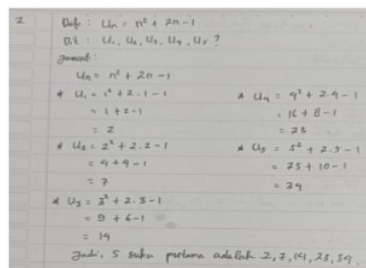 2
Dik : Un = n² + 2n - 1
Dit : U₁, U₂, U₃, U₄, U₅ ?
Jawab :
Un = n² + 2n - 1
* U₁ = 1² + 2.1 - 1
= 1 + 2 - 1
= 2
* U₂ = 2² + 2.2 - 1
= 4 + 4 - 1
= 7
* U₃ = 3² + 2.3 - 1
= 9 + 6 - 1
= 14
* U₄ = 4² + 2.4 - 1
= 16 + 8 - 1
= 23
* U₅ = 5² + 2.5 - 1
= 25 + 10 - 1
= 34
Jadi, 5 suku pertama adalah 2, 7, 14, 23, 34.